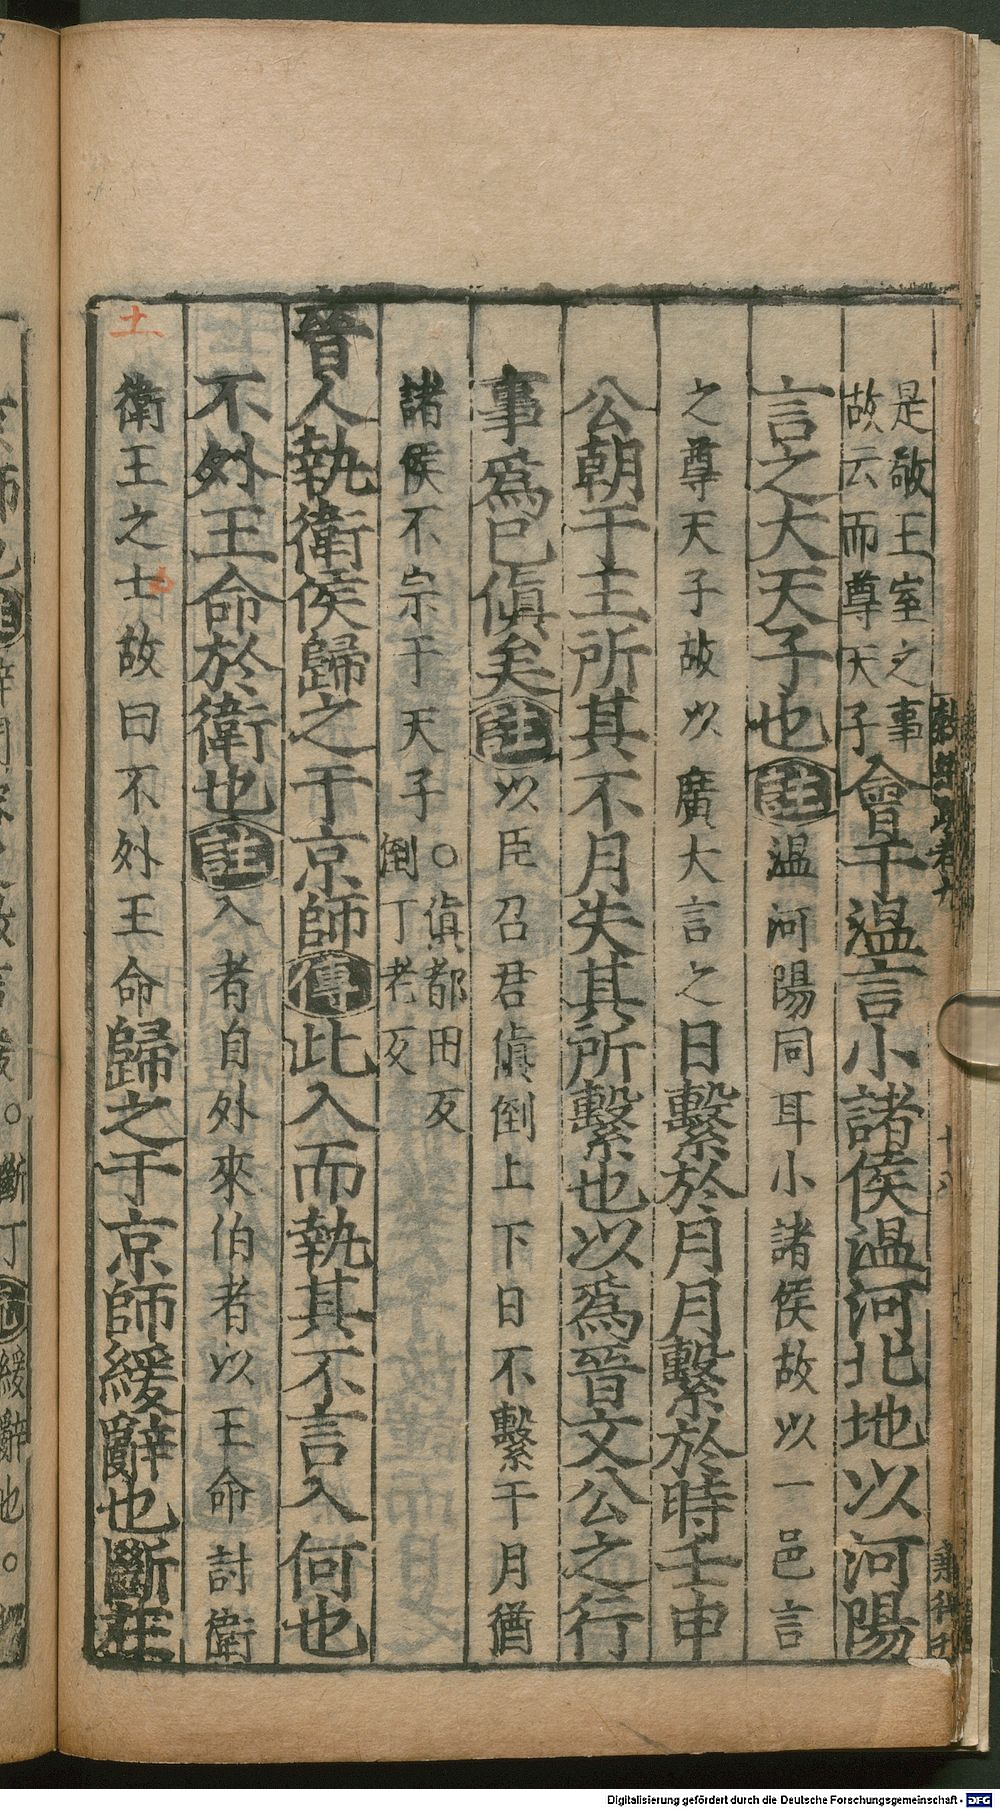 是敬王室之事
故云而尊天子
會于溫言小諸侯溫河北地以河陽
言之大天子也註溫河陽同耳小諸侯故以一邑言
之尊天子故以廣大言之日繫於月月繫於時壬申
公朝于主所其不月失其所繫也以爲晉文公之行
事爲已傎矣註以臣召君傎倒上下日不繫于月猶
諸侯不宗于天子
○傎都田反
倒丁老反
晉人執衛侯歸之于京師傳此入而執其不言入何也
不外王命於衛也註入者自外來伯者以王命討衛
衛王之士故曰不外王命歸之于京師緩辭也斷在
土
Digitalisierung gefördert durch die Deutsche Forschungsgemeinschaft - DFG